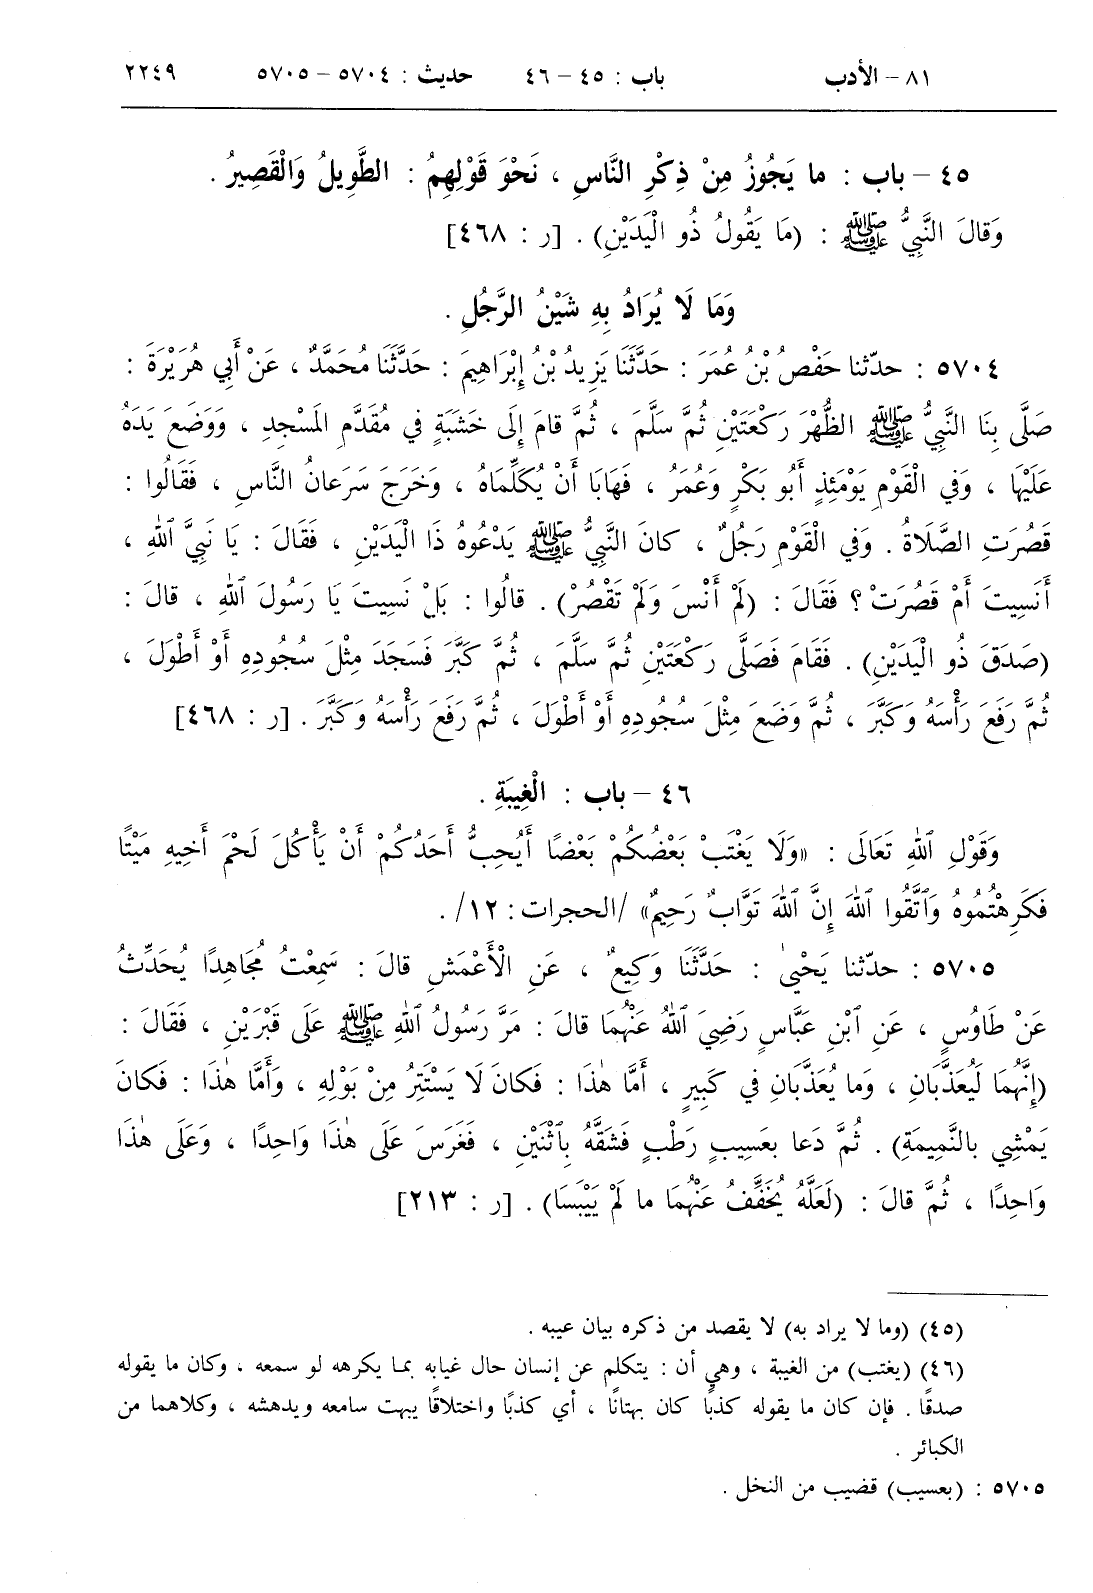 ٨١ – الأدب باب : ٤٥ – ٤٦ حديث : ٥٧٠٤ – ٥٧٠٥ ٢٢٤٩
٤٥ – باب : ما يَجُوزُ مِنْ ذِكْرِ النَّاسِ ، نَحْوَ قَوْلِهِمُ : الطَّوِيلُ وَالْقَصِيرُ .
وَقالَ النَّبِيُّ ﷺ : (مَا يَقُولُ ذُو الْيَدَيْنِ) . [ر : ٤٦٨]
وَمَا لَا يُرَادُ بِهِ شَيْنُ الرَّجُلِ .
٥٧٠٤ : حدّثنا حَفْصُ بْنُ عُمَرَ : حَدَّثَنَا يَزِيدُ بْنُ إِبْرَاهِيمَ : حَدَّثَنَا مُحَمَّدٌ ، عَنْ أَبِي هُرَيْرَةَ :
صَلَّى بِنَا النَّبِيُّ ﷺ الظُّهْرَ رَكْعَتَيْنِ ثُمَّ سَلَّمَ ، ثُمَّ قامَ إِلَى خَشَبَةٍ في مُقَدَّمِ المَسْجِدِ ، وَوَضَعَ يَدَهُ
عَلَيْهَا ، وَفي الْقَوْمِ يَوْمَئِذٍ أَبُو بَكْرٍ وَعُمَرُ ، فَهَابَا أَنْ يُكَلِّمَاهُ ، وَخَرَجَ سَرَعانُ النَّاسِ ، فَقَالُوا :
قَصُرَتِ الصَّلَاةُ . وَفي الْقَوْمِ رَجُلٌ ، كانَ النَّبِيُّ ﷺ يَدْعُوهُ ذَا الْيَدَيْنِ ، فَقَالَ : يَا نَبِيَّ ٱللهِ ،
أَنَسِيتَ أَمْ قَصُرَتْ ؟ فَقَالَ : (لَمْ أَنْسَ وَلَمْ تَقْصُرْ) . قالُوا : بَلْ نَسِيتَ يَا رَسُولَ ٱللهِ ، قالَ :
(صَدَقَ ذُو الْيَدَيْنِ) . فَقَامَ فَصَلَّى رَكْعَتَيْنِ ثُمَّ سَلَّمَ ، ثُمَّ كَبَّرَ فَسَجَدَ مِثْلَ سُجُودِهِ أَوْ أَطْوَلَ ،
ثُمَّ رَفَعَ رَأْسَهُ وَكَبَّرَ ، ثُمَّ وَضَعَ مِثْلَ سُجُودِهِ أَوْ أَطْوَلَ ، ثُمَّ رَفَعَ رَأْسَهُ وَكَبَّرَ . [ر : ٤٦٨]
٤٦ – باب : الْغِيبَةِ .
وَقَوْلِ ٱللهِ تَعَالَى : «وَلَا يَغْتَبْ بَعْضُكُمْ بَعْضًا أَيُحِبُّ أَحَدُكُمْ أَنْ يَأْكُلَ لَحْمَ أَخِيهِ مَيْتًا
فَكَرِهْتُمُوهُ وَٱتَّقُوا ٱللهَ إِنَّ ٱللهَ تَوَّابٌ رَحِيمٌ» /الحجرات : ١٢/ .
٥٧٠٥ : حدّثنا يَحْيىٰ : حَدَّثَنَا وَكِيعٌ ، عَنِ الْأَعْمَشِ قالَ : سَمِعْتُ مُجَاهِدًا يُحَدِّثُ
عَنْ طَاوُسٍ ، عَنِ ٱبْنِ عَبَّاسٍ رَضِيَ ٱللهُ عَنْهُمَا قالَ : مَرَّ رَسُولُ ٱللهِ ﷺ عَلَى قَبْرَيْنِ ، فَقَالَ :
(إِنَّهُمَا لَيُعَذَّبَانِ ، وَما يُعَذَّبَانِ في كَبِيرٍ ، أَمَّا هٰذَا : فَكانَ لَا يَسْتَتِرُ مِنْ بَوْلِهِ ، وَأَمَّا هٰذَا : فَكانَ
يَمْشِي بالنَّمِيمَةِ) . ثُمَّ دَعا بعَسِيبٍ رَطْبٍ فَشَقَّهُ بِٱثْنَيْنِ ، فَغَرَسَ عَلَى هٰذَا وَاحِدًا ، وَعَلَى هٰذَا
وَاحِدًا ، ثُمَّ قالَ : (لَعَلَّهُ يُخَفَّفُ عَنْهُمَا ما لَمْ يَيْبَسَا) . [ر : ٢١٣]
(٤٥) (وما لا يراد به) لا يقصد من ذكره بيان عيبه .
(٤٦) (يغتب) من الغيبة ، وهي أن : يتكلم عن إنسان حال غيابه بما يكرهه لو سمعه ، وكان ما يقوله
صدقًا . فإن كان ما يقوله كذبًا كان بهتانًا ، أي كذبًا واختلاقًا يبهت سامعه ويدهشه ، وكلاهما من
الكبائر .
٥٧٠٥ : (بعسيب) قضيب من النخل .